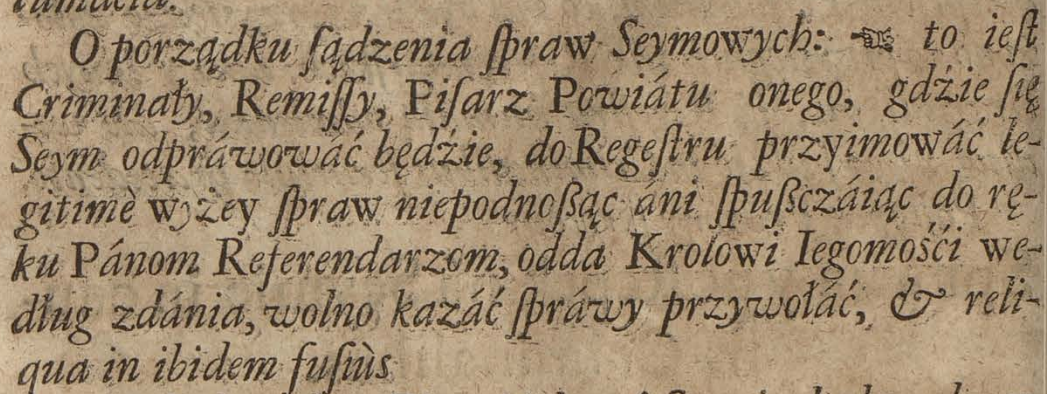 O porządku ſądzenia ſpraw Seymowych: ☜ to ieſt
Criminały, Remiſſy, Piſarz Powiátu onego, gdźie ſię
Seym odpráwowáć będźie, do Regeſtru przyimowáć le-
gitimè wyżey ſpraw niepodnoßąc áni ſpußczáiąc do rę-
ku Pánom Referendarzom, odda Krolowi Iegomośći we-
dług zdánia, wolno kazáć ſpráwy przywołáć, & reli-
qua in ibidem fuſiùs